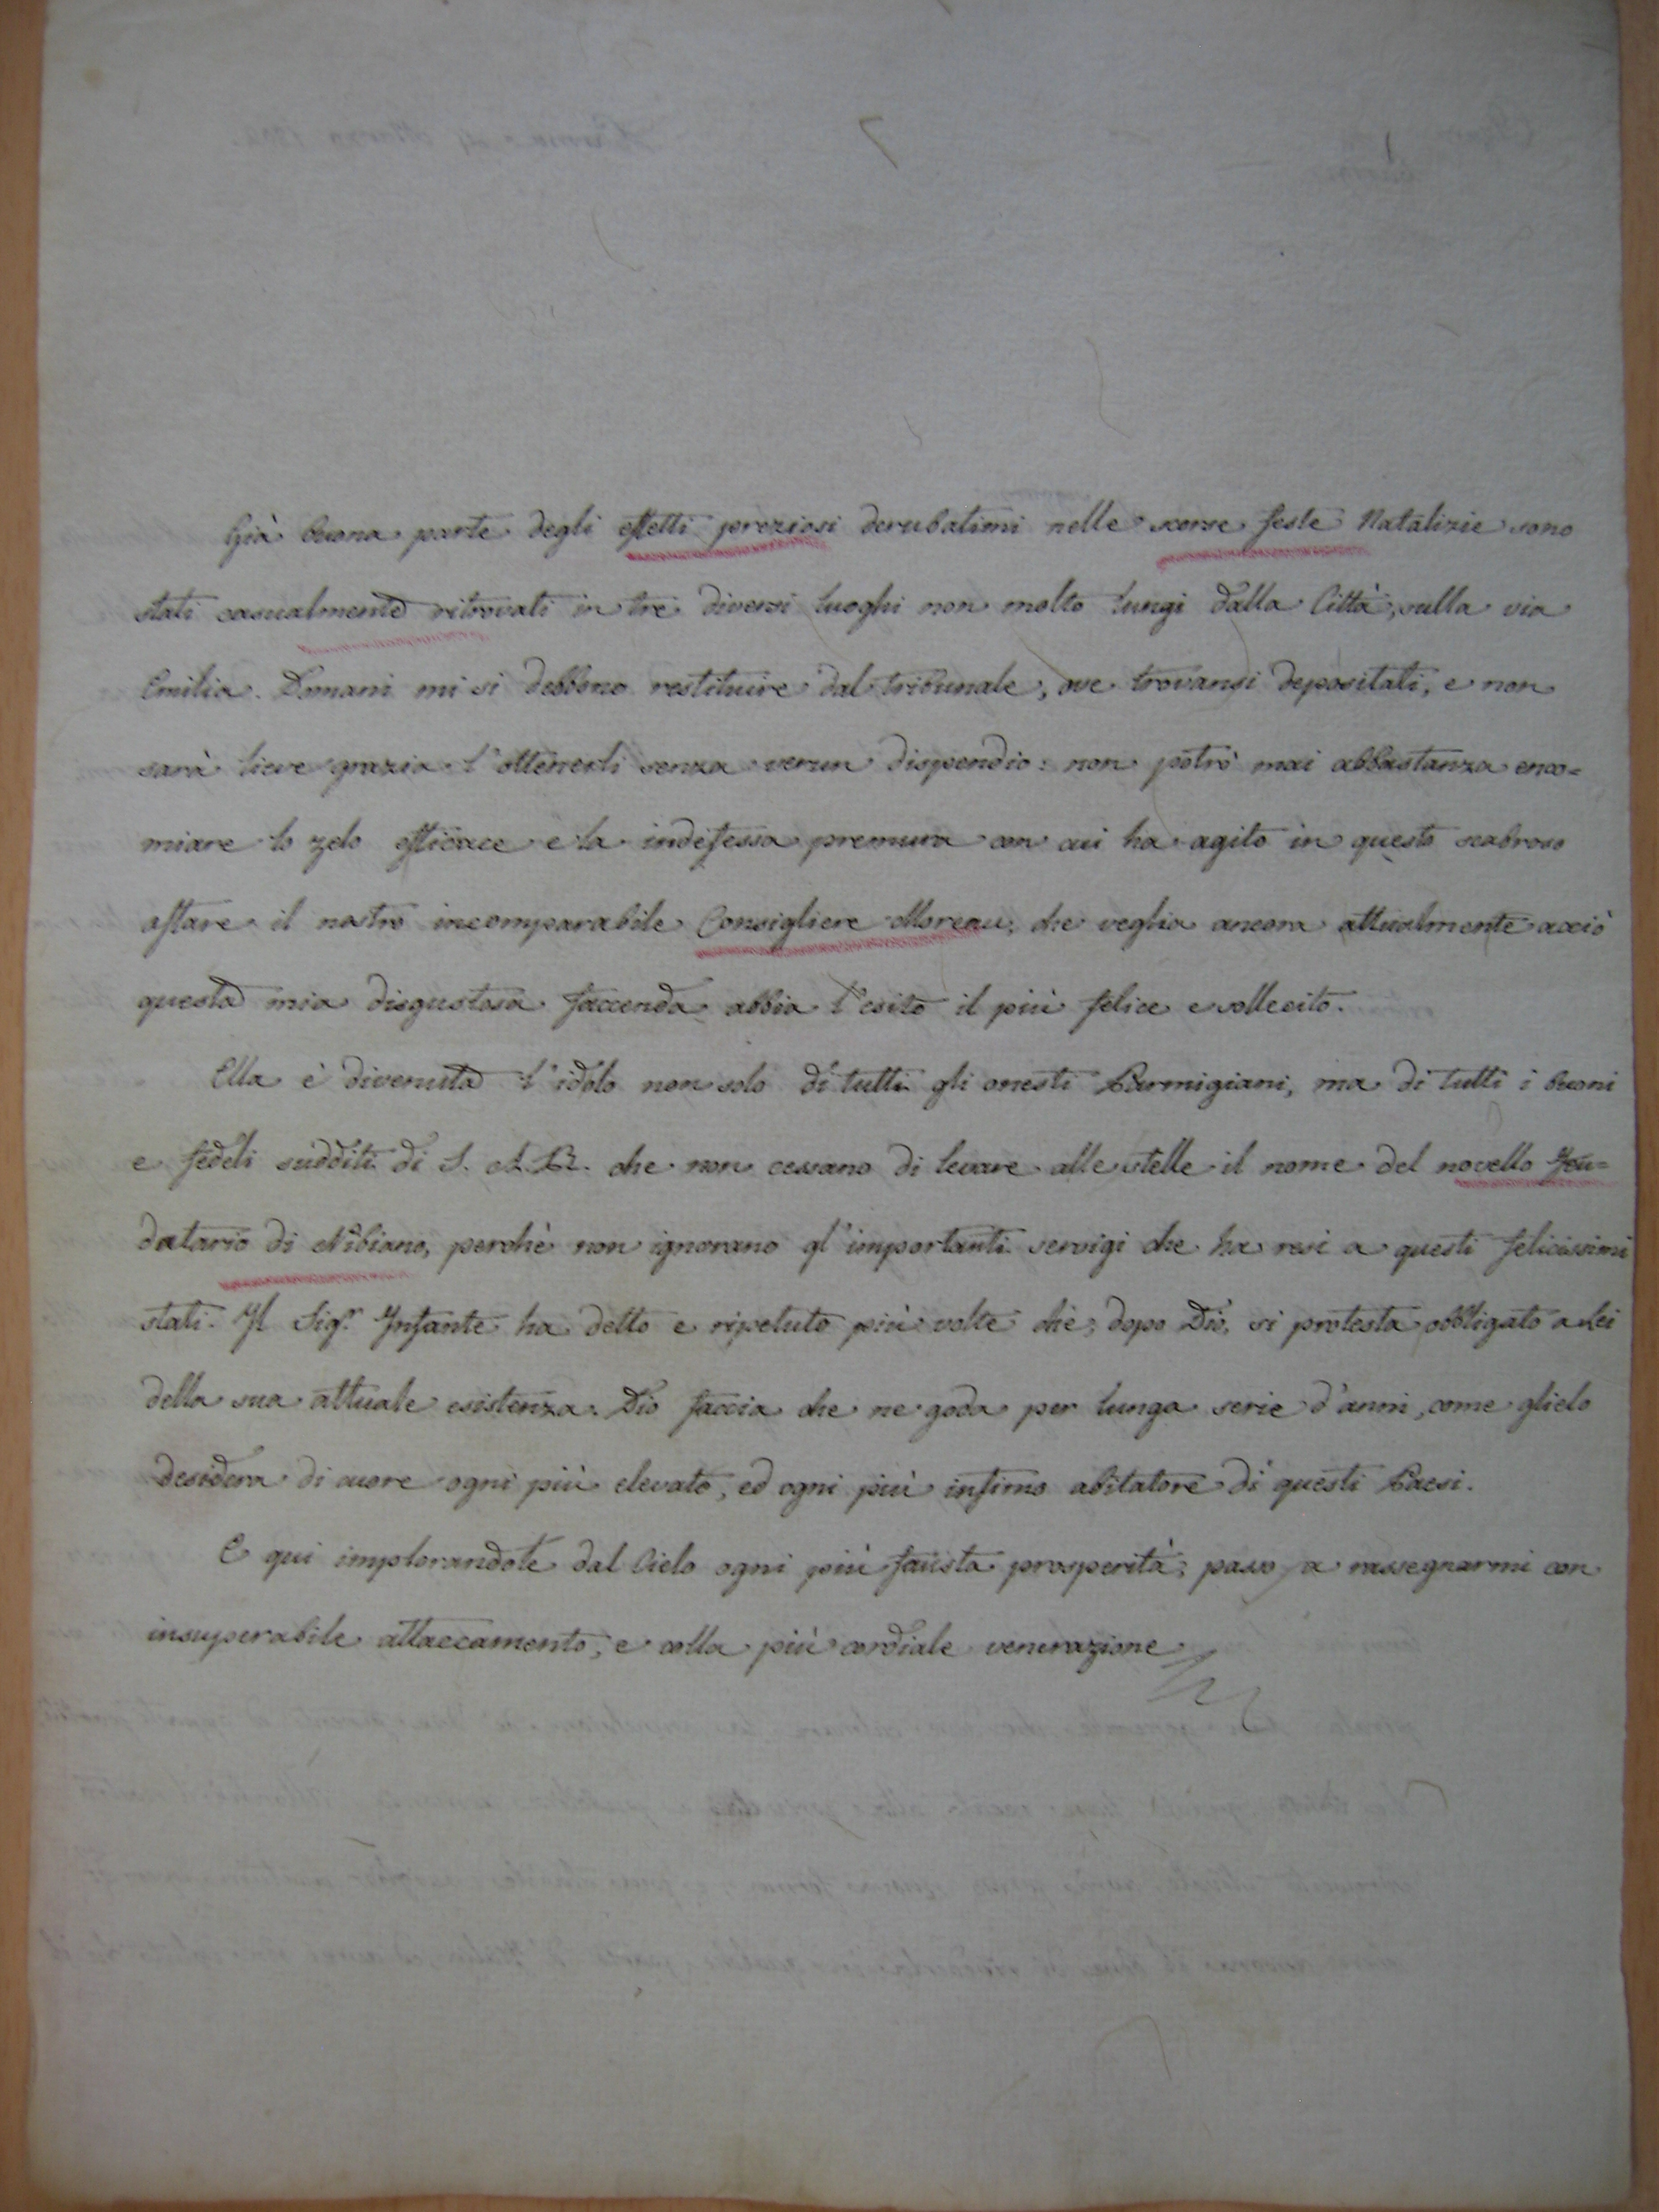 Già buona parte degli effetti preziosi derubatimi nelle scorse feste Natalizie sono
stati casualmente ritrovati in tre diversi luoghi non molto lungi dalla Città, sulla via
Emilia. Domani mi si debbono restituire dal tribunale, ove trovansi depositati, e non
sarà lieve grazia l'ottenerli senza verun dispendio: non potrò mai abbastanza enco=
miare lo zelo efficace e la indefessa premura con cui ha agito in questo scabroso
affare il nostro incomparabile Consigliere Moreau, che veglia ancora attualmente acciò
questa mia disgustosa faccenda abbia l'esito il più felice e sollecito.
Ella è divenuta l'idolo non solo di tutti gli onesti Parmigiani, ma di tutti i buoni
e fedeli sudditi di S. A. R. che non cessano di levare alle stelle il nome del novello Feu=
datario di Nibiano, perchè non ignorano gl'importanti servigi che ha resi a questi felicissimi
stati. Il Sigr. Infante ha detto e ripetuto più volte che, dopo Dio, si protesta obbligato a Lei
della sua attuale esistenza. Dio faccia che ne goda per lunga serie d'anni, come glielo
desidera di cuore ogni più elevato, ed ogni più infimo abitatore di questi Paesi.
E qui implorandole dal Cielo ogni più fausta prosperità, passo a rassegnarmi con
insuperabile attaccamento, e colla più cordiale venerazione